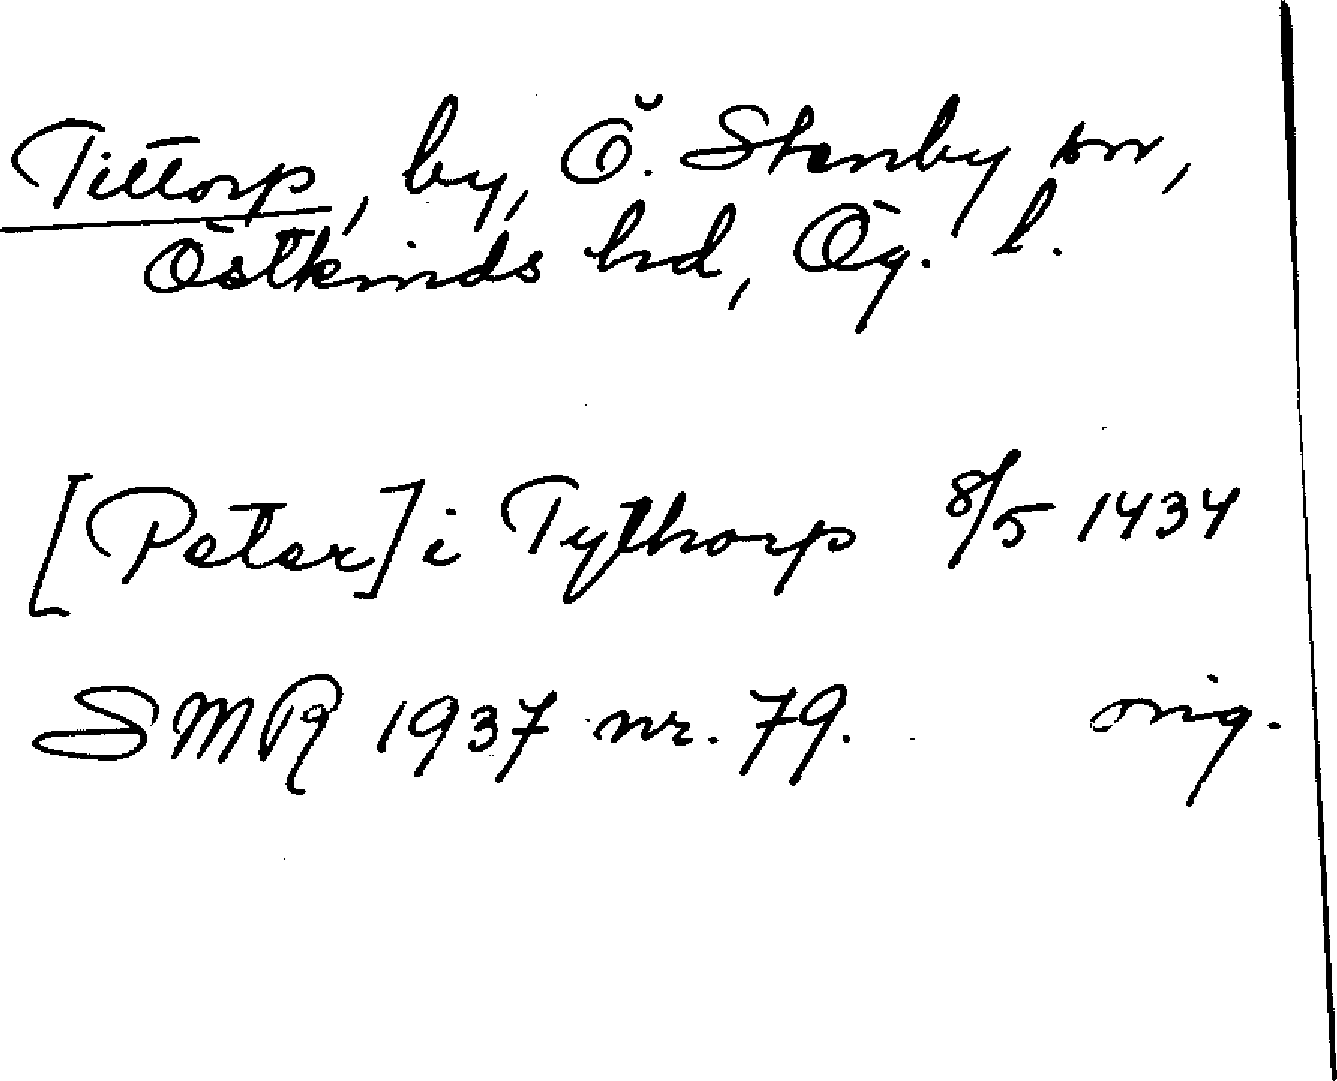 Tittorp, by, Ö. Stenby sn,
Östkinds hd, Ög. l.
[Peter] i Tytthorp 8/5 1434
SMR 1937 nr. 79. orig.